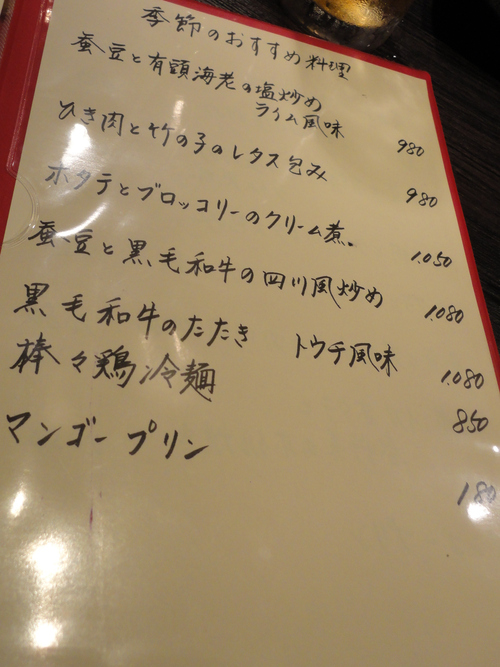 季節のおすすめ料理
蚕豆と有頭海老の塩炒め
ライム風味 980
ひき肉と竹の子のレタス包み 980
ホタテとブロッコリーのクリーム煮。 1.050
蚕豆と黒毛和牛の四川風炒め 1.080
黒毛和牛のたたき トウチ風味 1.080
棒々鶏冷麺 850
マンゴープリン 180